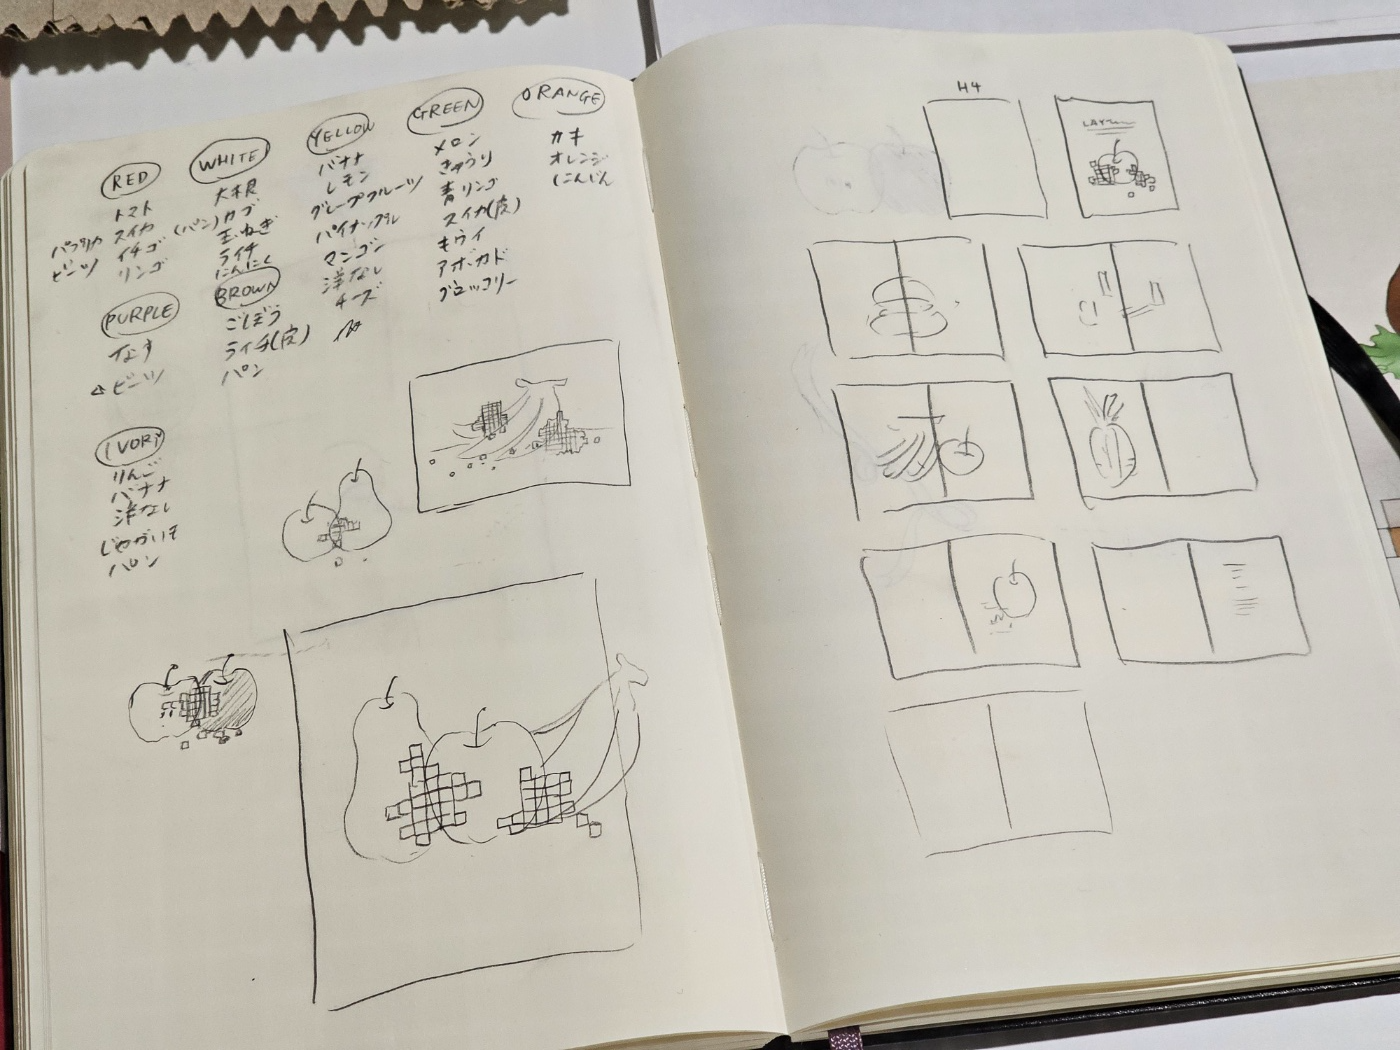 RED
トマト
パプリカ スイカ
ビーツ イチゴ
リンゴ
WHITE
大根
(パン) カブ
玉ねぎ
ライチ
にんにく
YELLOW
バナナ
レモン
グレープフルーツ
パイナップル
マンゴー
洋なし
チーズ
GREEN
メロン
きゅうり
青リンゴ
スイカ(皮)
キウイ
アボカド
ブロッコリー
ORANGE
カキ
オレンジ
にんじん
PURPLE
なす
△ビーツ
BROWN
ごぼう
ライチ(皮)
パン
IVORY
りんご
バナナ
洋なし
じゃがいも
H4